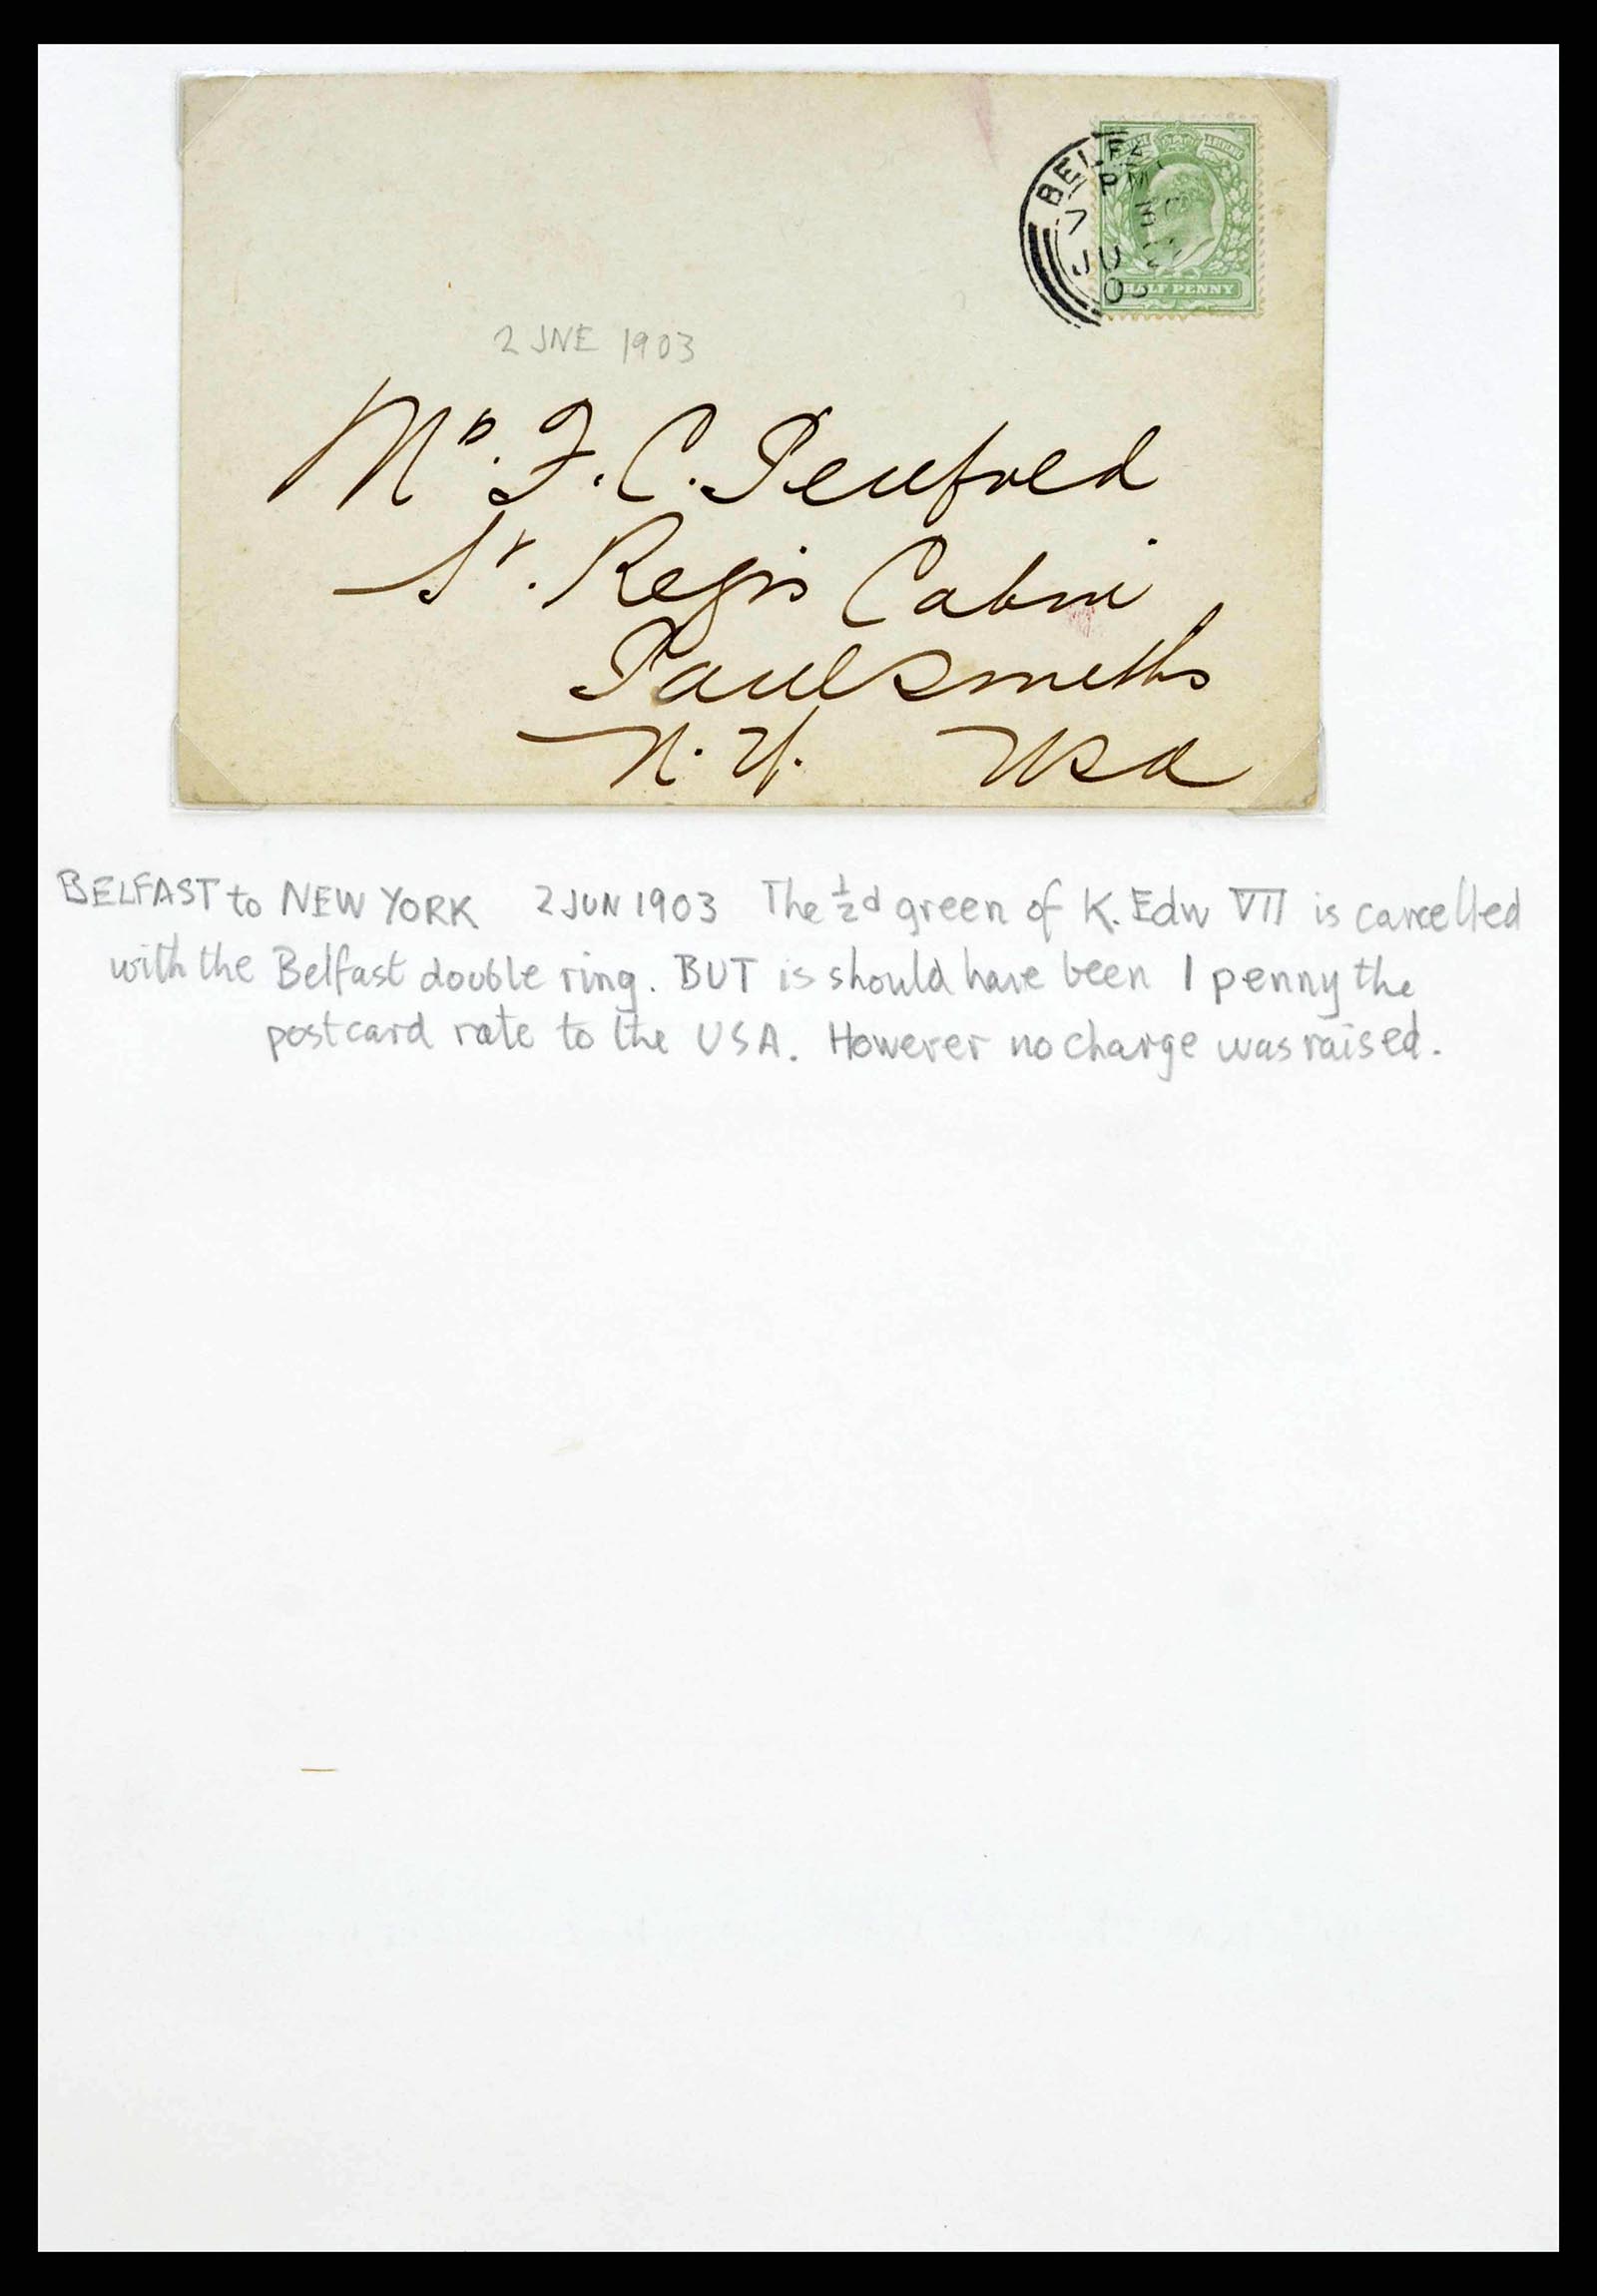 BELFA
PM
7 30
JU 2
03
HALF PENNY
2 JNE 1903
Mr. F. C. Penfold
St. Regis Cabin
Paul Smiths
N. Y. USA
BELFAST to NEW YORK 2 JUN 1903 The ½d green of K. Edw VII is cancelled
with the Belfast double ring. BUT is should have been 1 penny the
postcard rate to the USA. However no charge was raised.